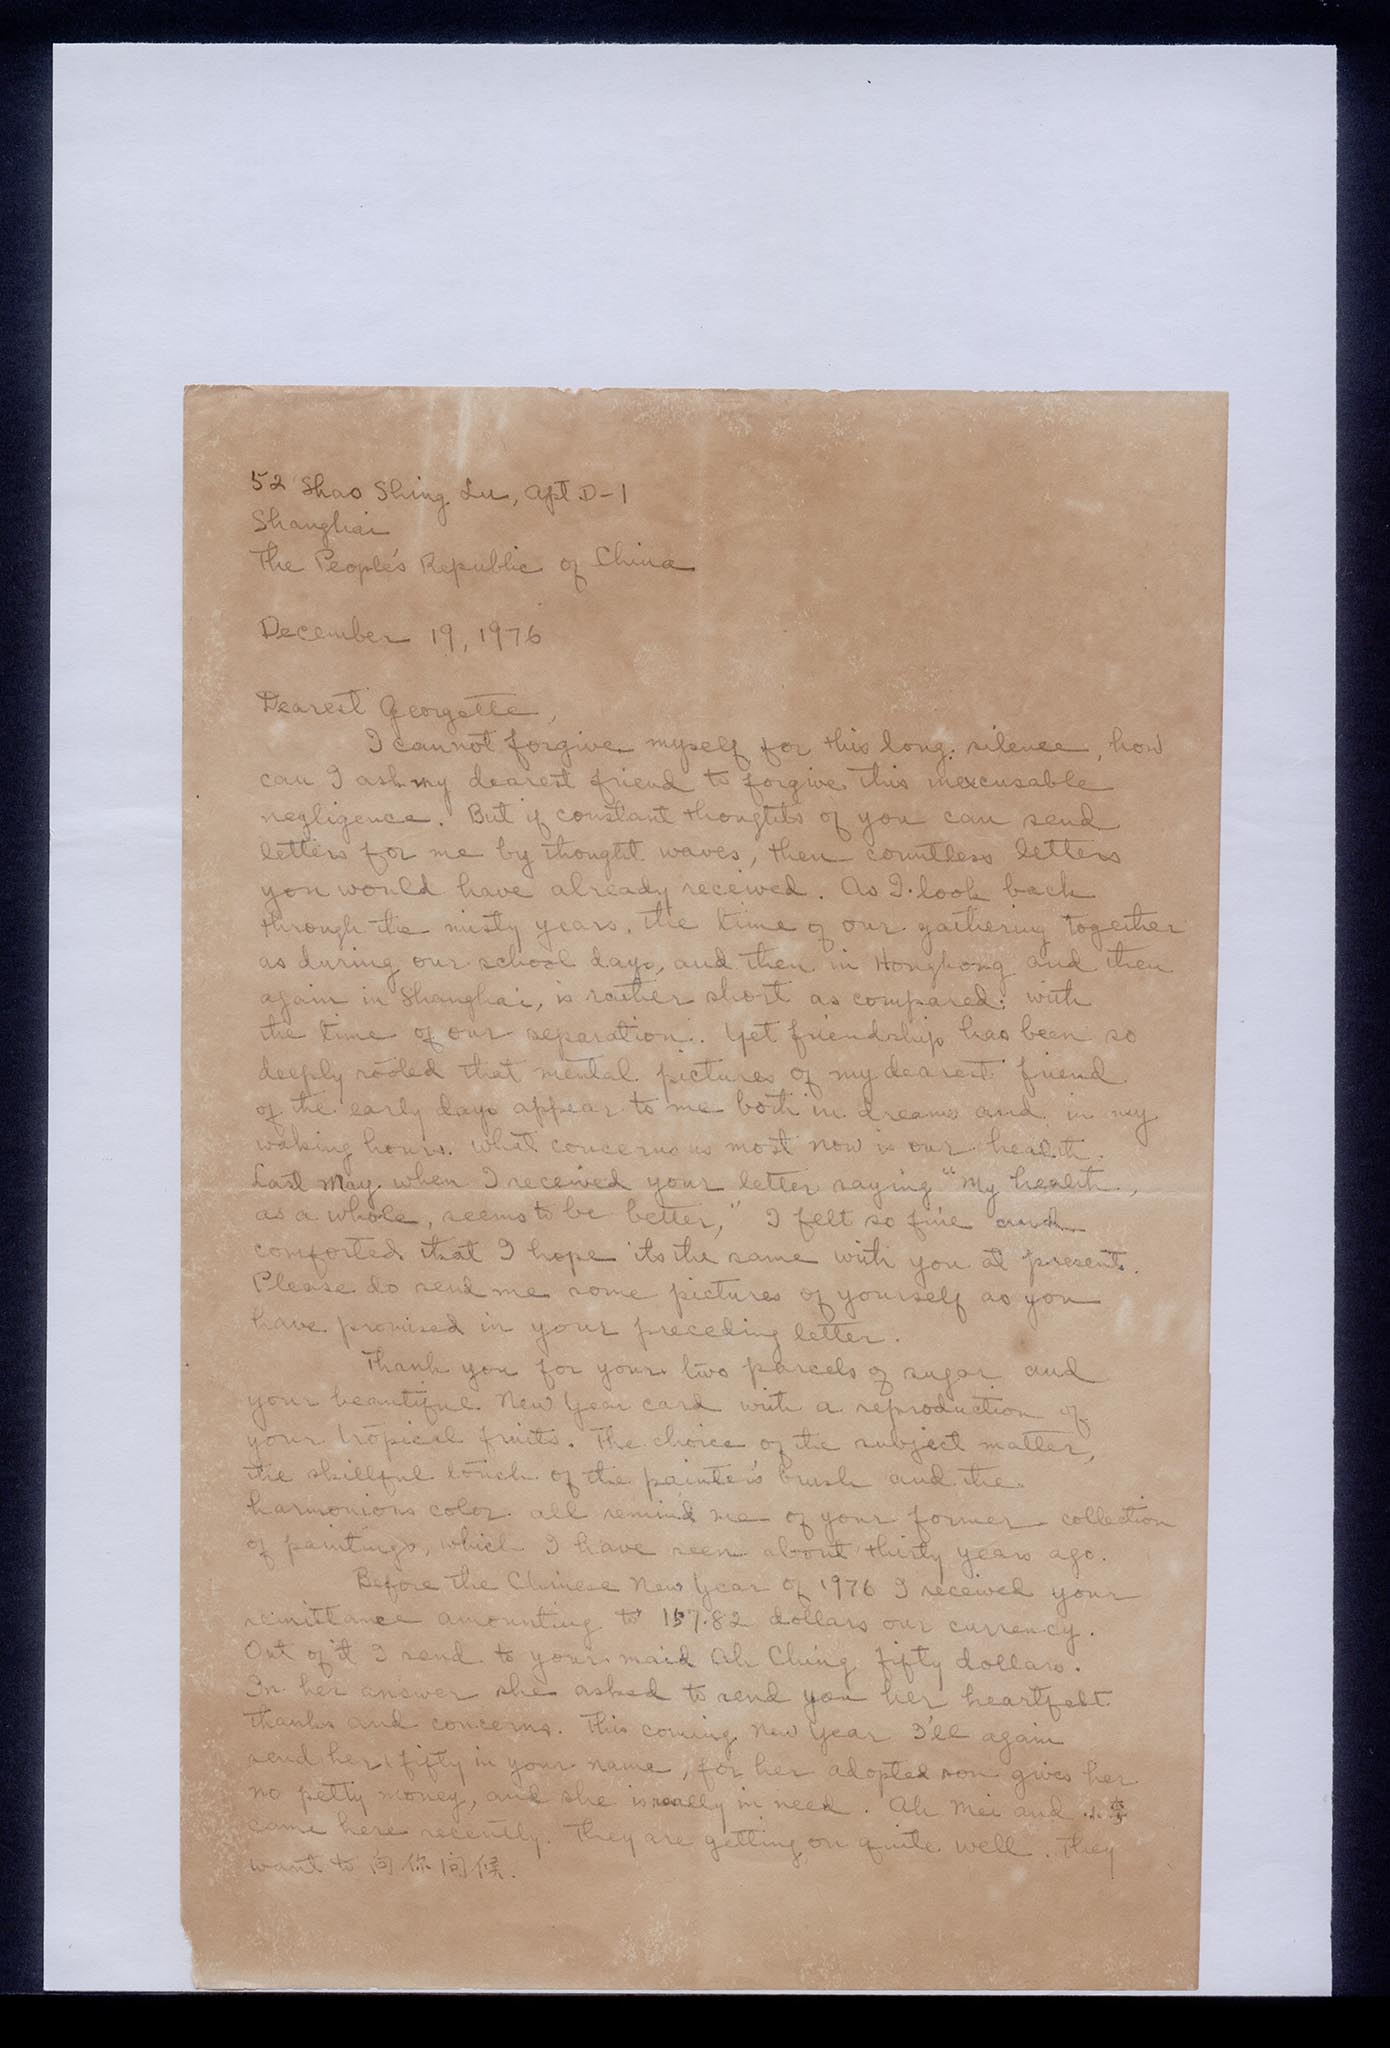 52 Shao Shing Lu, Apt. D-1
Shanghai
The People's Republic of China
December 19, 1976
Dearest Georgette,
I cannot forgive myself for this long silence, how
can I ask my dearest friend to forgive this inexcusable
negligence. But if constant thoughts of you can send
letters for me by thought waves, then countless letters
you would have already received. As I look back
through the misty years, the time of our gathering together
as during our school days, and then in Hongkong and then
again in Shanghai, is rather short as compared with
the time of our separation. Yet friendship has been so
deeply rooted that mental pictures of my dearest friend
of the early days appear to me both in dreams and in my
waking hours. What concerns us most now is our health.
Last May when I received your letter saying "My health,
as a whole, seems to be better," I felt so fine and
comforted that I hope its the same with you at present.
Please do send me some pictures of yourself as you
have promised in your preceding letter.
Thank you for your two parcels of sugar and
your beautiful New Year card with a reproduction of
your tropical fruits. The choice of the subject matter,
the skillful touch of the painter's brush and the
harmonious color all remind me of your former collection
of paintings, which I have seen about thirty years ago.
Before the Chinese New Year of 1976 I received your
remittance amounting to 157.82 dollars our currency.
Out of it I send to your maid Ah Ching fifty dollars.
In her answer she asked to send you her heartfelt
thanks and concerns. This coming New Year I'll again
send her fifty in your name, for her adopted son gives her
no petty money, and she is really in need. Ah Mei and
came here recently. They are getting on quite well. They
want to 向你问候.